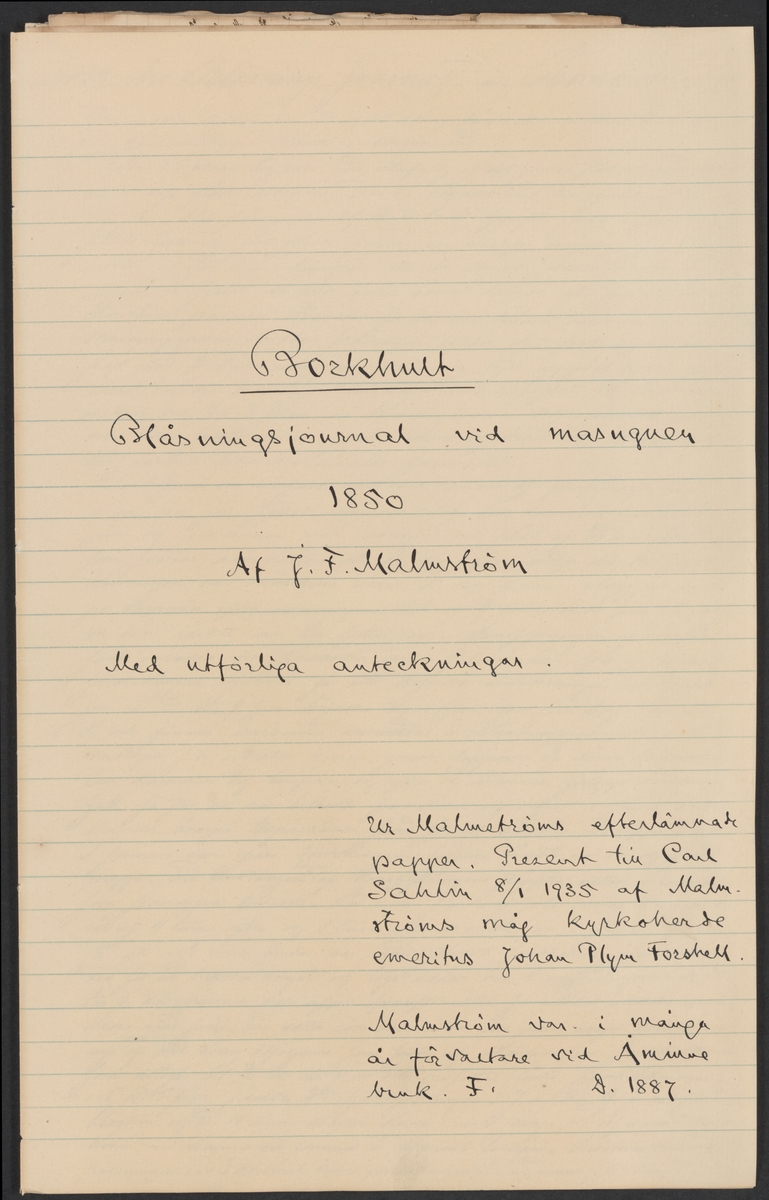 Borkhult
Blåsningsjournal vid masugnen
1850
Af J. F. Malmström
Med utförliga anteckningar.
Ur Malmströms efterlämnade
papper. Present till Carl
Sahlin 8/1 1935 af Malm-
ströms måg kyrkoherde
emeritus Johan Plym Forshell.
Malmström var i många
år förvaltare vid Åminne
bruk. F. D. 1887.